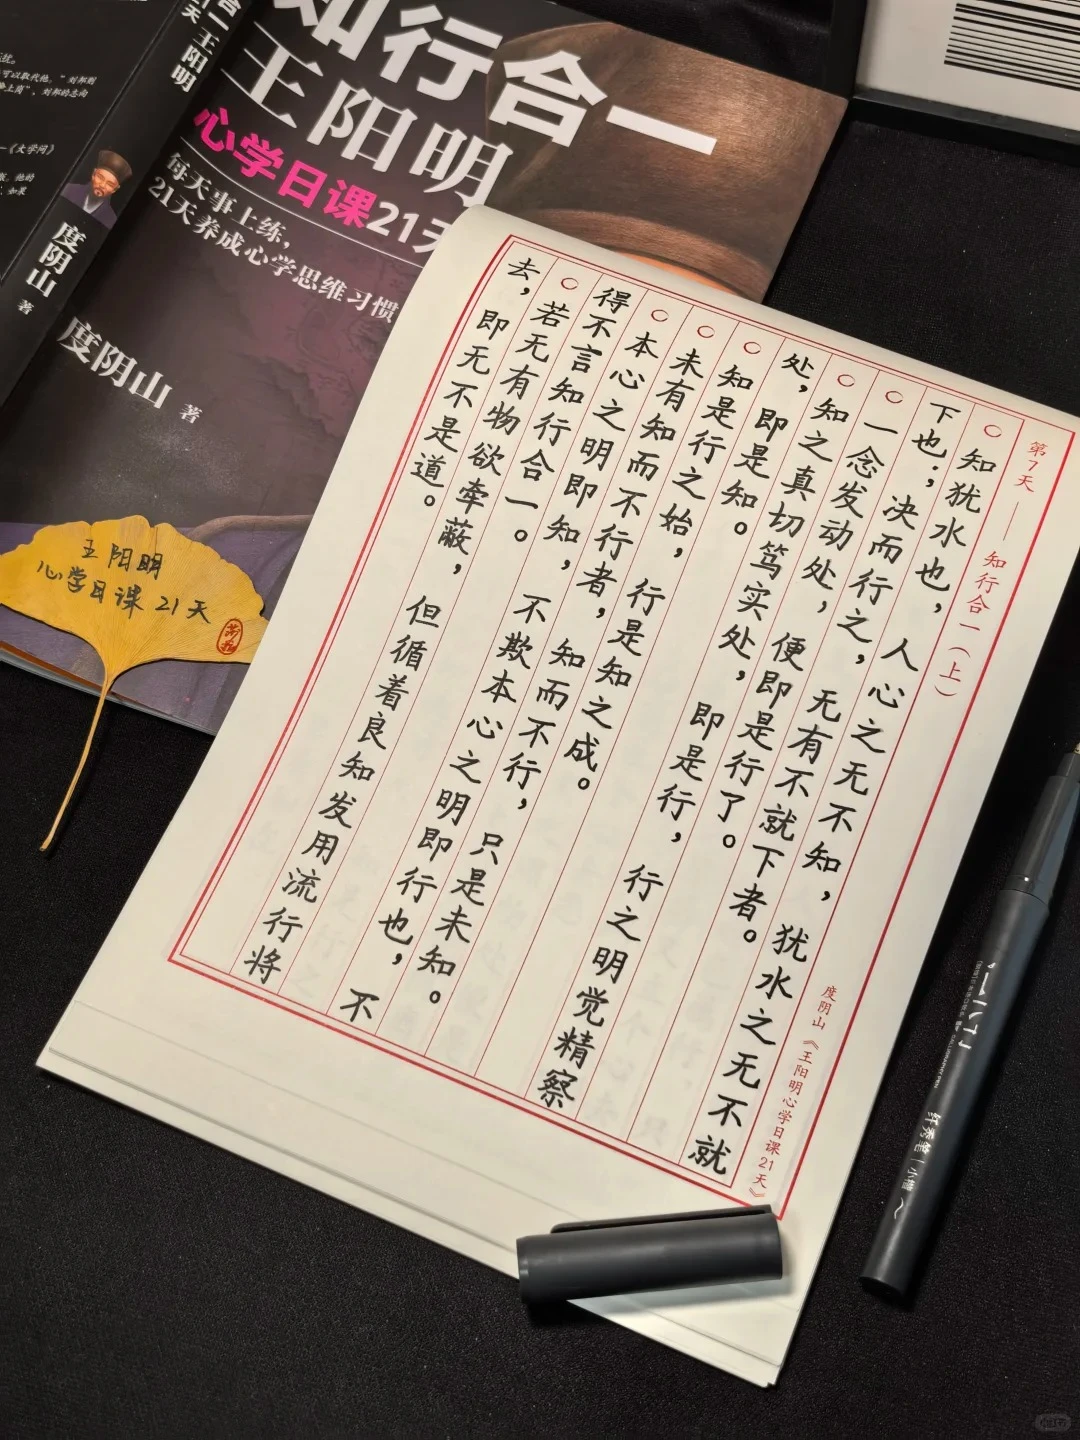 知行合一
王阳明
心学日课21天
每天事上练，
21天养成心学思维习惯
度阴山 著
合一 王阳明
度阴山 著
可以取代他。”刘邦则
”，刘邦的志向
—《大学问》
王阳明
心学日课21天
第7天——知行合一（上）
度阴山《王阳明心学日课21天》
○知犹水也，人心之无不知，犹水之无不就
下也；决而行之，无有不就下者。
○一念发动处，便即是行了。
○知之真切笃实处，即是行，行之明觉精察
处，即是知。
○知是行之始，行是知之成。
○未有知而不行者，知而不行，只是未知。
○本心之明即知，不欺本心之明即行也，不
得不言知行合一。
○若无有物欲牵蔽，但循着良知发用流行将
去，即无不是道。
纤秀笔 小楷
小红书